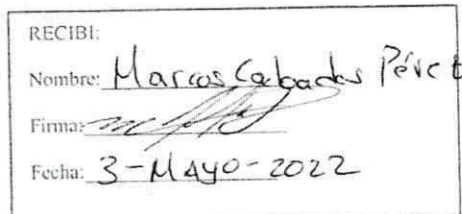 RECIBI:
Nombre: Marcos Pérez
Firma:
Fecha: 3-MAYO-2022